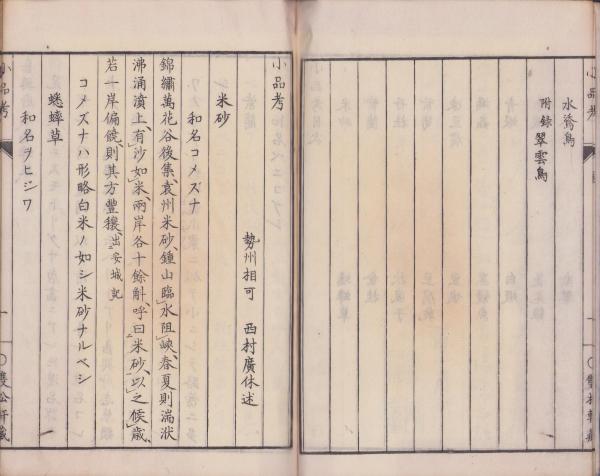 水鷄鳥
附錄 翠雲鳥
小品考
小品考
勢州相可 西村廣休述
米砂
和名コメズナ
錦繡萬花谷後集、袁州米砂、鍾山臨水阻峽、春夏則湍洑
沸涌濆上、有沙如米、兩岸各十餘斛、呼曰米砂、以之候歲、
若一岸偏饒、則其方豐穰、出安城記
コメズナハ形略白米ノ如シ米砂ナルベシ
蟋蟀草
和名ヲヒシワ
小品考
一